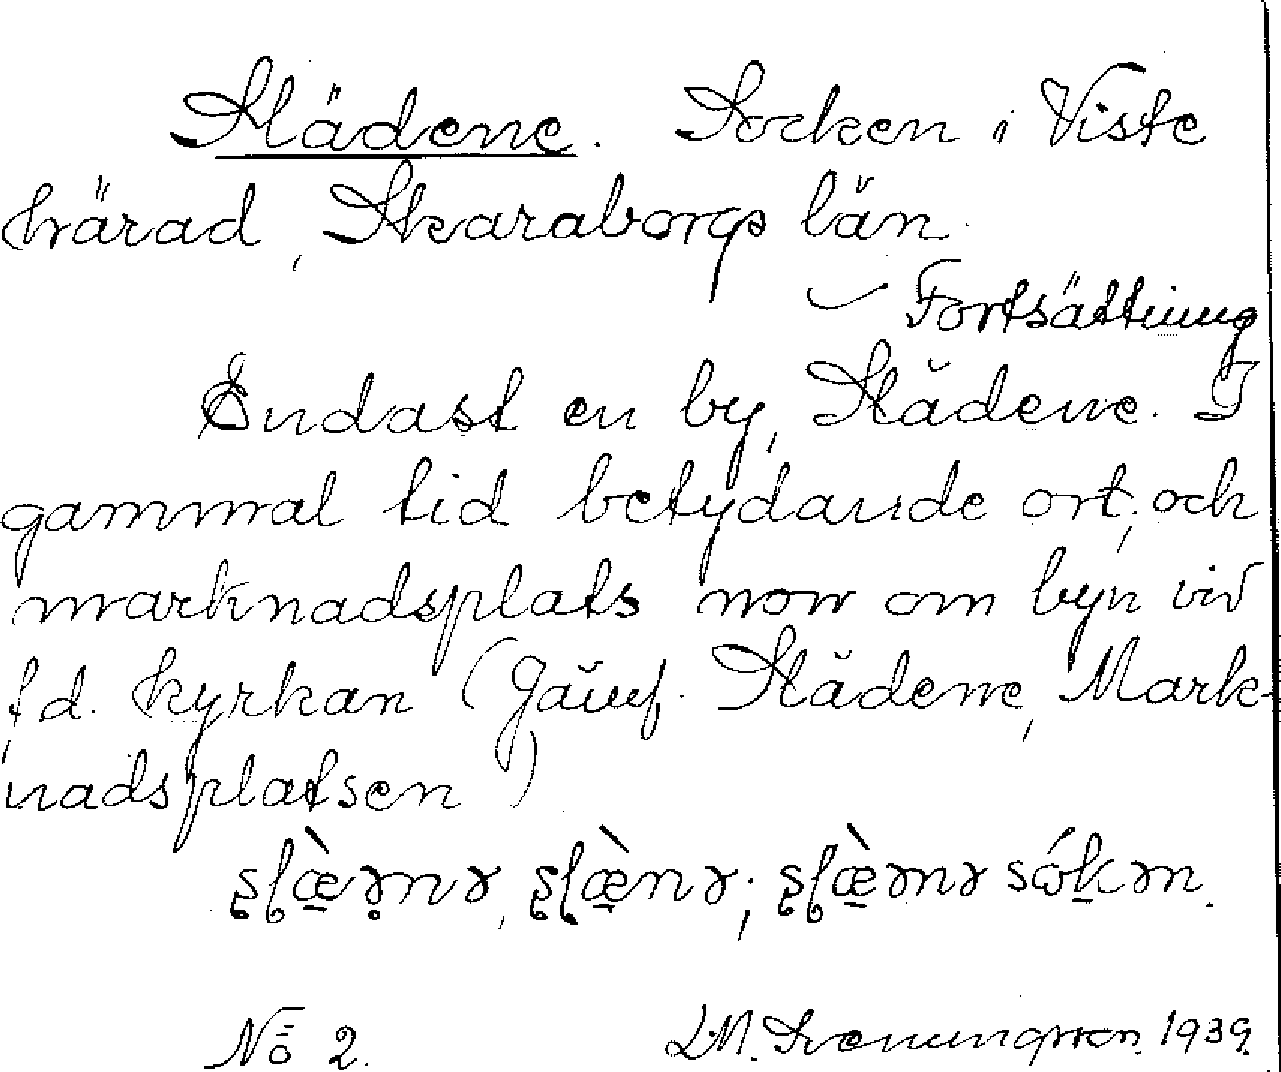 Slädene. Socken i Viste
härad, Skaraborgs län.
Fortsättning
Endast en by, Slädene. I
gammal tid betydande ort, och
marknadsplats norr om byn vid
f.d. kyrkan (Jämf. Slädene, Mark-
nadsplatsen)
No 2. 1939.